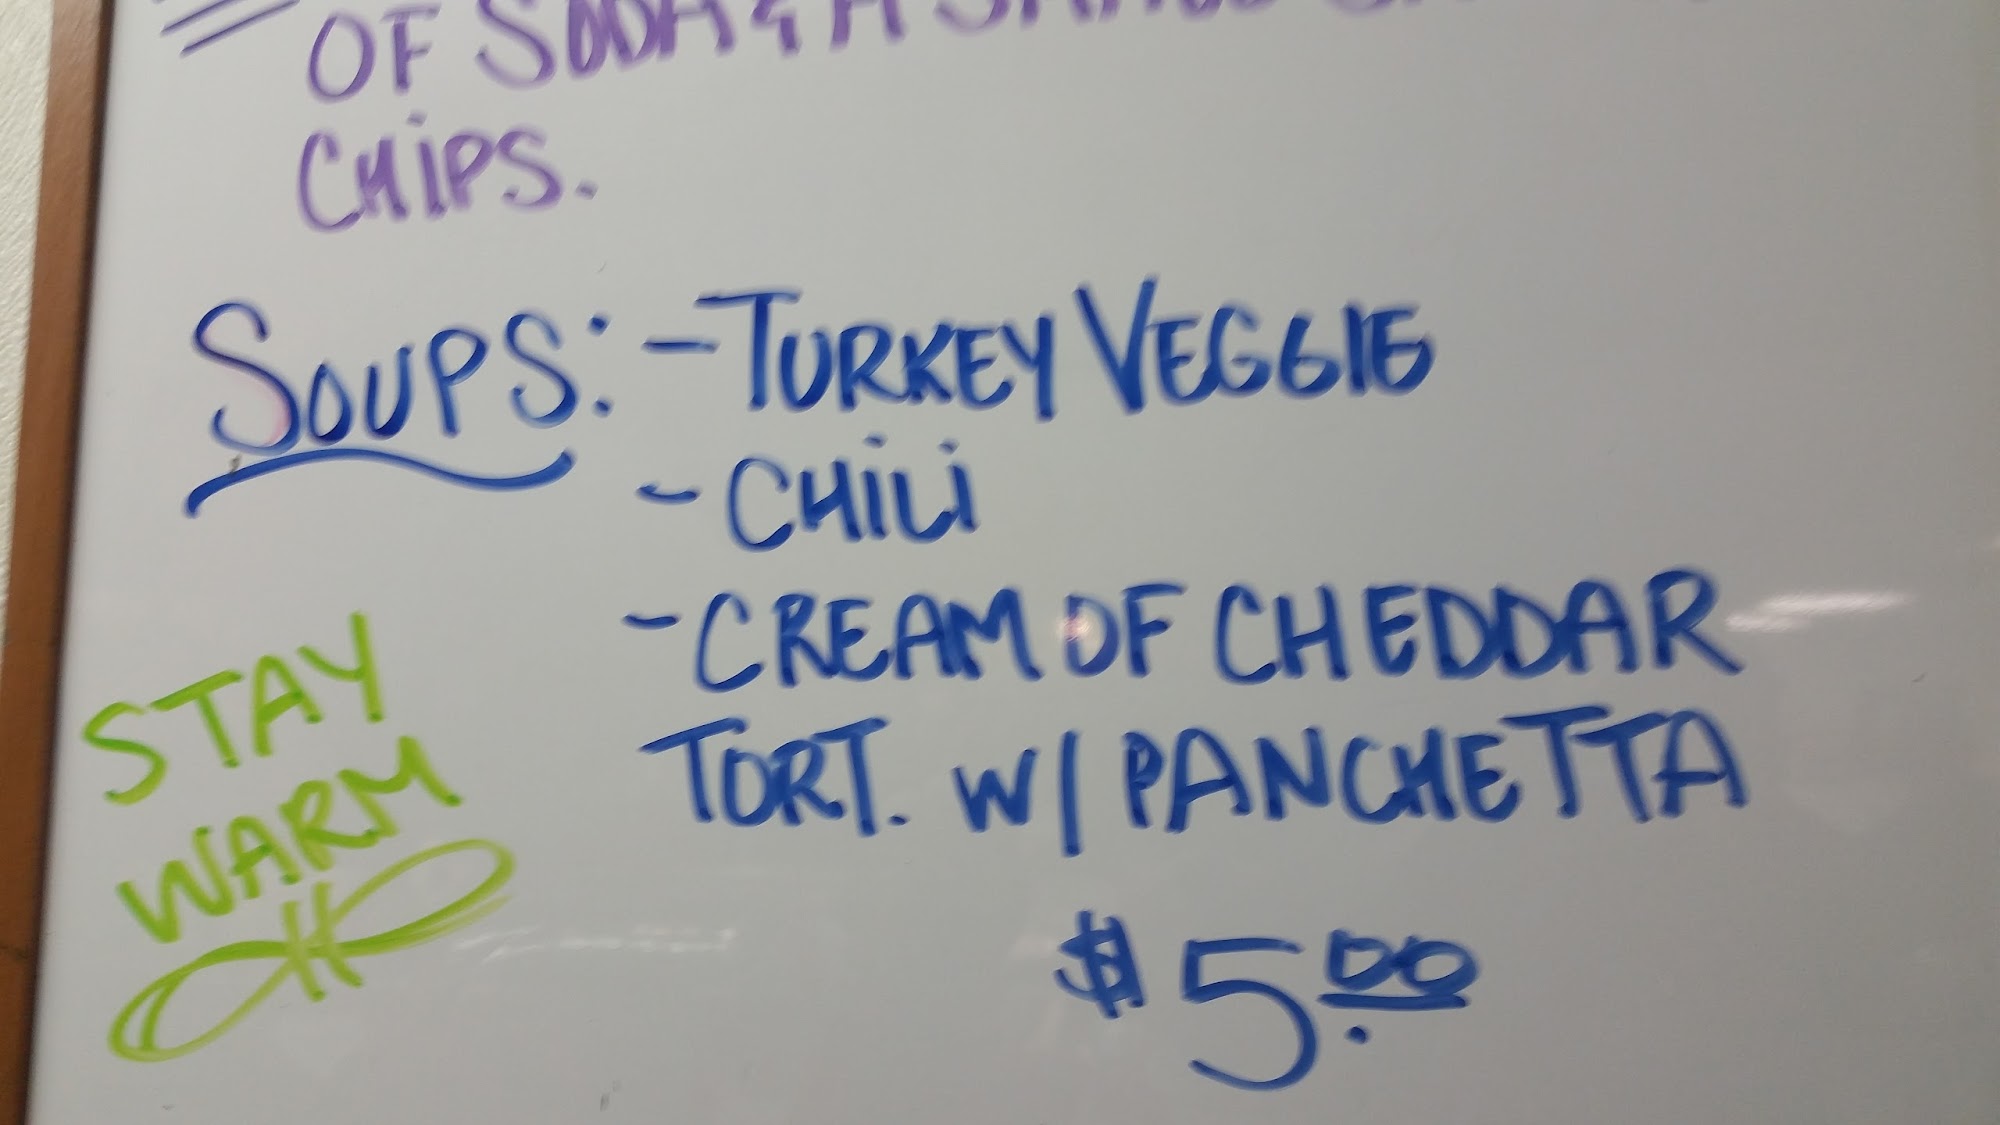 OF SODA & A
CHiPS.
SOUPS: - TURKEY VEGGIE
- CHiLi
- CREAM OF CHEDDAR
TORT. W/ PANCHETTA
$5.00
STAY
WARM